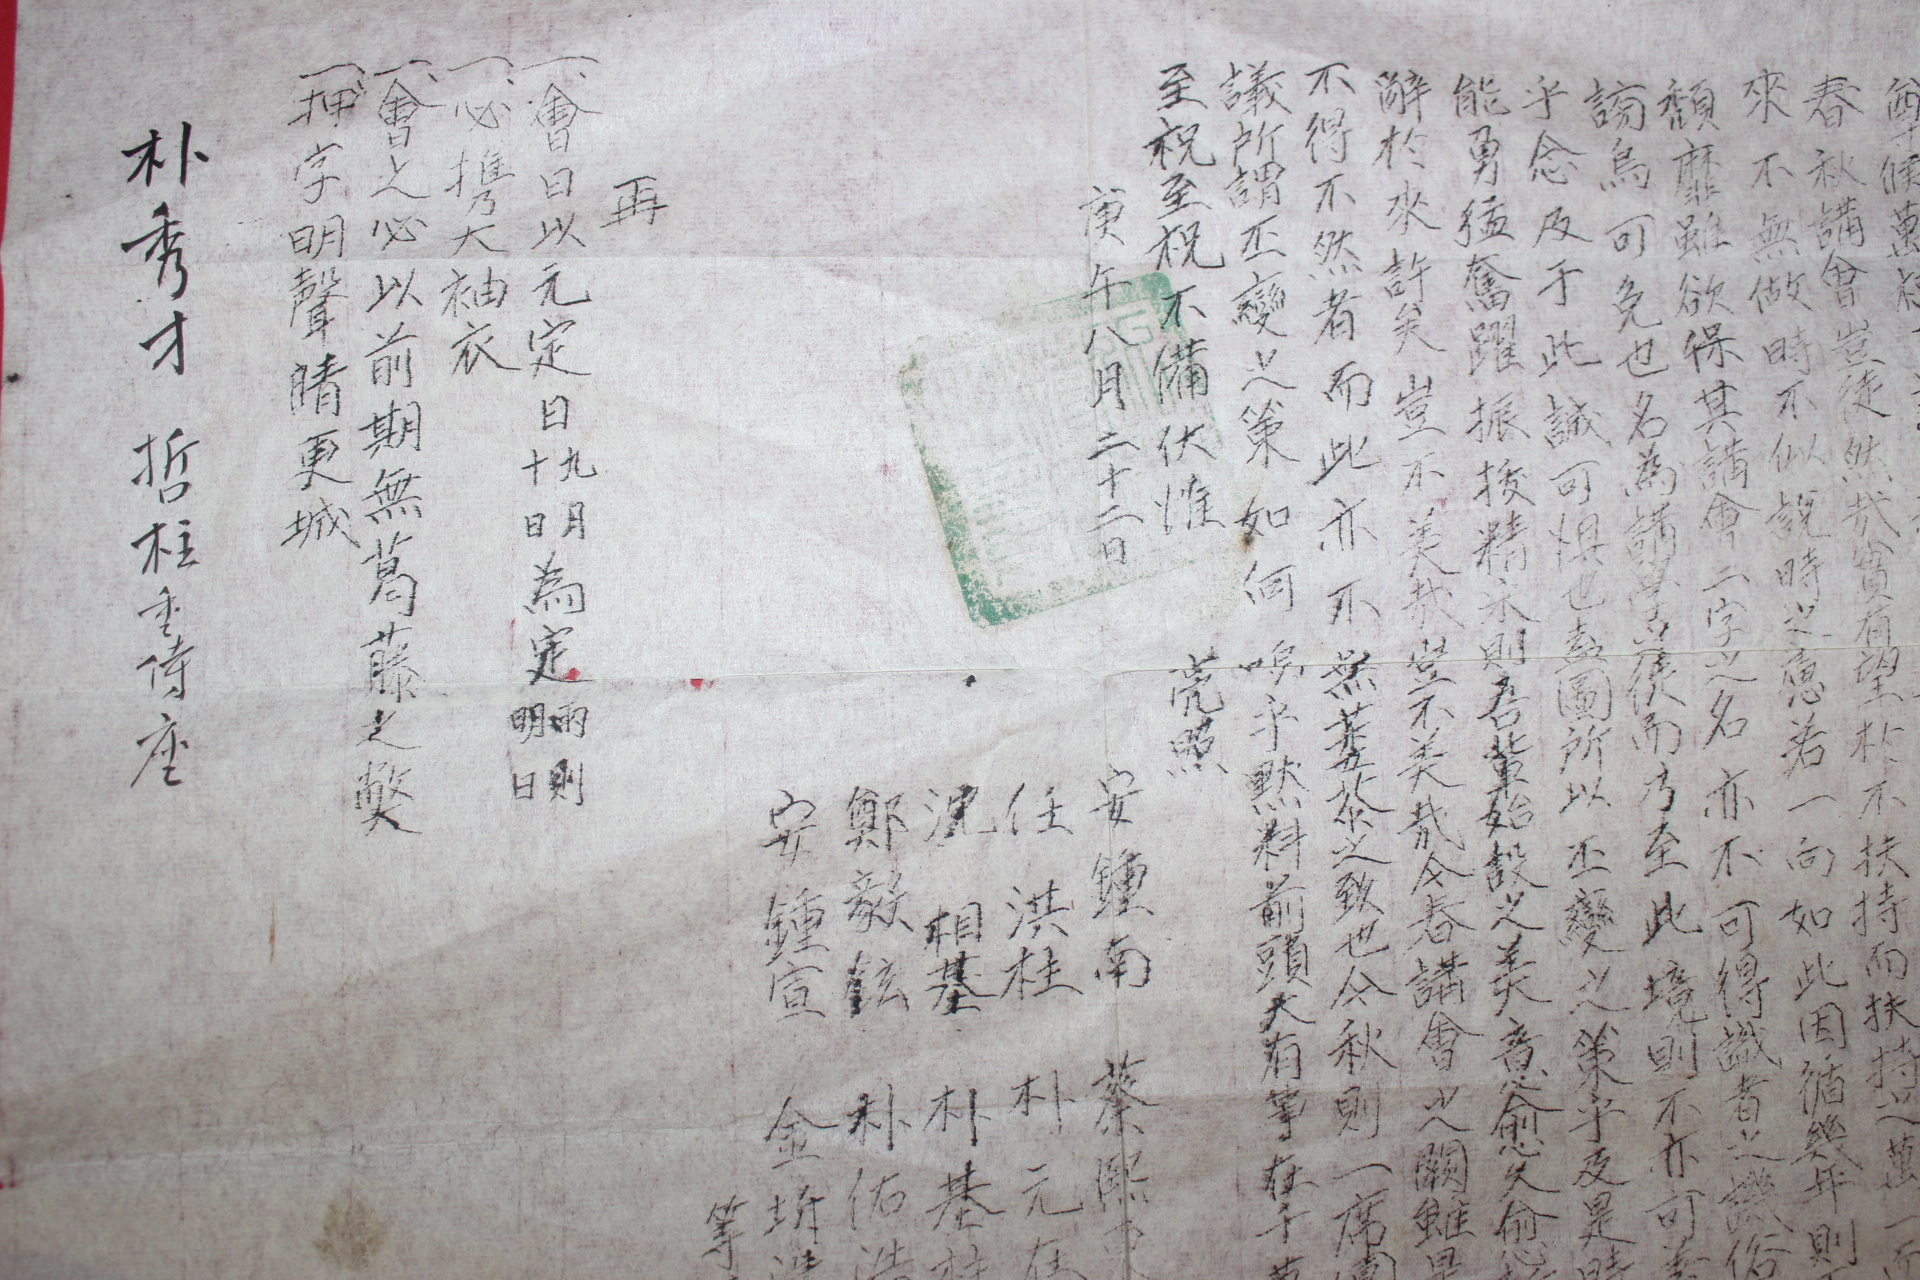 尊候萬
春秋講會豈徒然哉實有望於不扶持而扶持之萬一而
來不無做時不似說時之慮若一向如此因循幾年則
頹靡雖欲保其講會二字之名亦不可得識者之譏俗
謗烏可免也名為講學之徒而乃至此境則不亦可
乎念及于此誠可惧也盍圖所以丕變之策乎及是時
能勇猛奮躍振捘精永則吾輩始設之美意愈久愈
辭於來許矣豈不美哉豈不美哉今春講會之闕雖
不得不然者而此亦不無葉落之致也今秋則一席團
議所謂丕變之策如何嗚乎默料前頭大有事在千萬
至祝至祝不備伏惟
亮照
庚午八月二十二日
安鍾南 蔡熙
任洪柱 朴元在
沈相基 朴基柱
鄭毅鉉 朴佑浩
安鍾宣 金堉浩
等
再
一會日以元定日九月十日為定雨則明日
一必携大袖衣
一會之必以前期無葛藤之獘
一押字明聲晴更城
朴秀才 哲柱 侍座